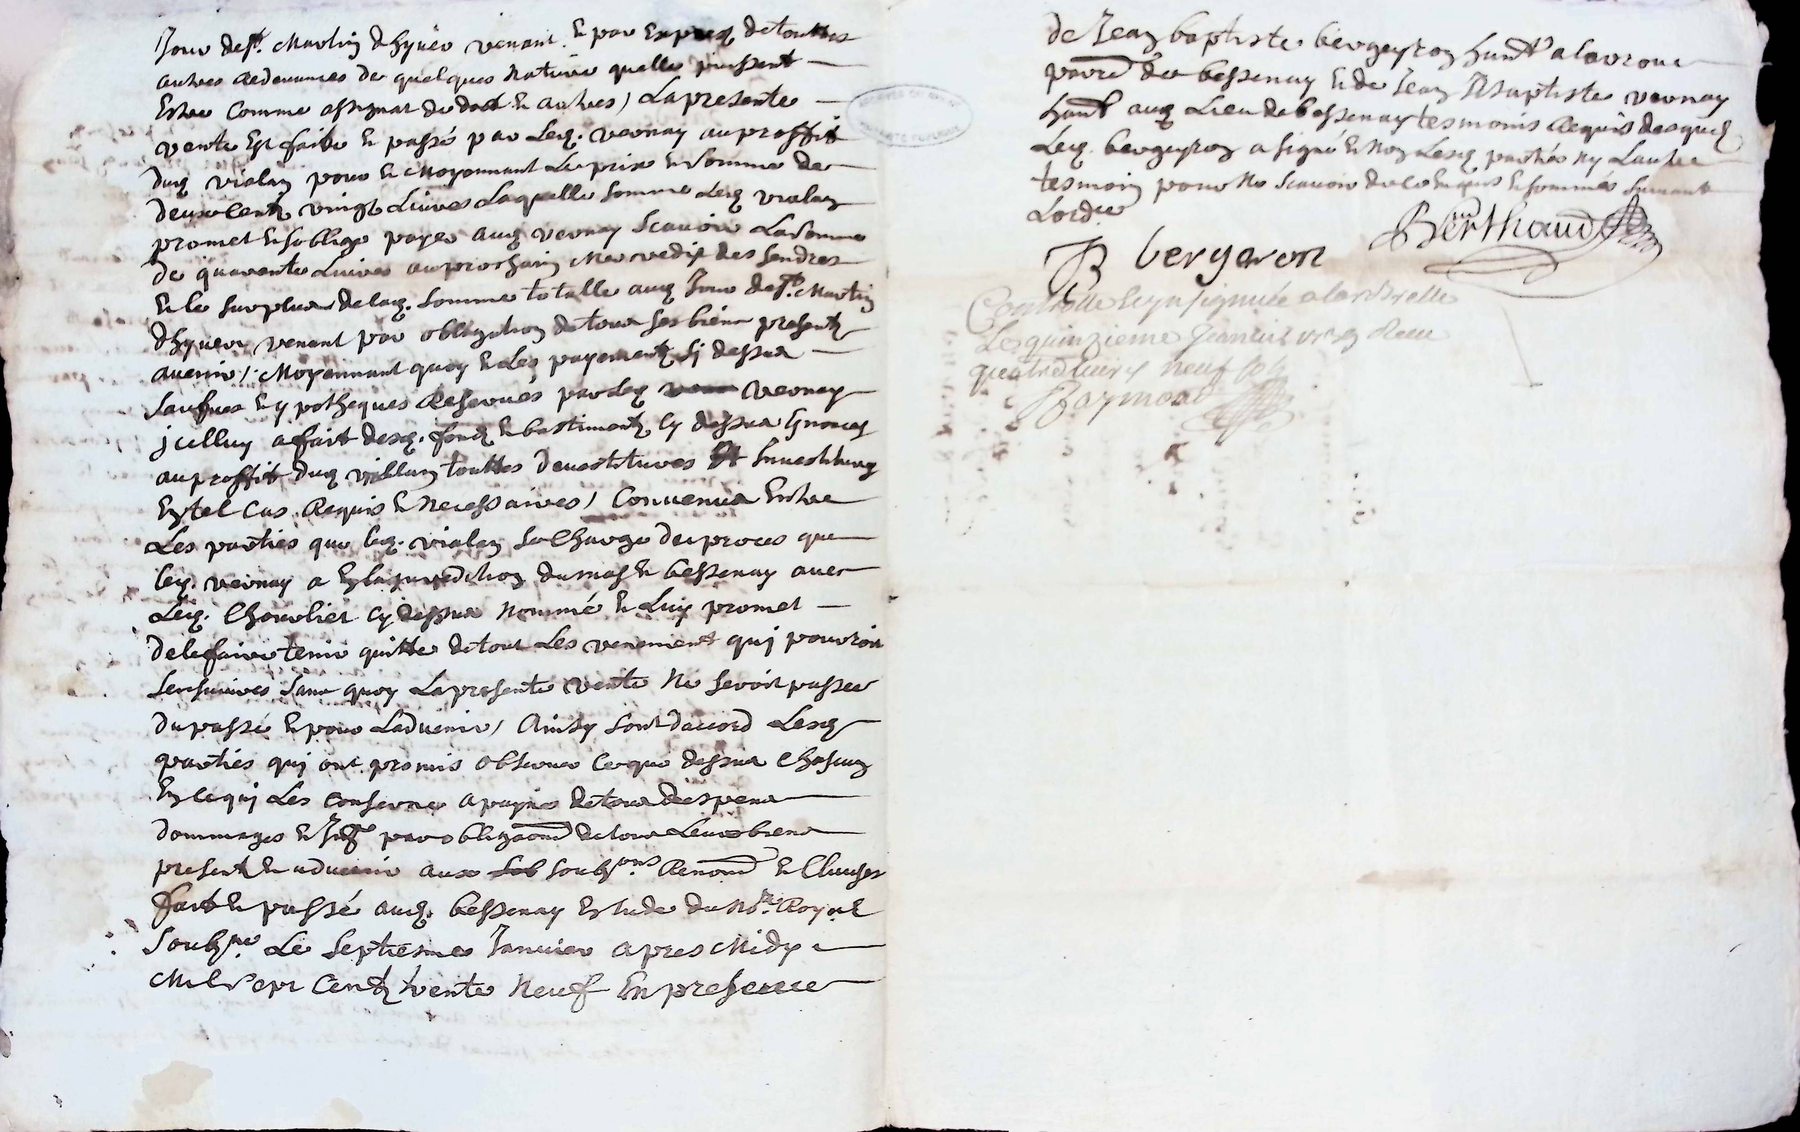 Jour de st. Martin dhyver venant & par expres de touttes
autres redevances de quelques nature quelle puissent
Estre comme assignat de dot & autres / La presente
vente Est faitte & passé par Leq. vernay au proffit
dud vialan pour & moyennant Le prix & somme de
deux Centz vingt Livres Laquelle somme Leq vialan
promet & soblige payer auq vernay scavoir La somme
de quarante Livres au prochain Mercredis des sendres
& le surplus de laq. somme totalle auq Jour de st. Martin
dhyver venant par obligation de tous ses biens presentz
avenir / Moyennant quoy & Les payementz sy dessus
saufues & ypotheques Reservés par leq vernay
jcelluy a fait desq. fondz & bastimentz cy dessus
au proffit duq viallan touttes devestitures Et Investitures
En tel cas Requis & necessaires / Convenus Entre
Les parties que leq. vialan se Charge du proces que
leq. vernay a En la jurediction du mas & bessenay avec
Leq. Chouvliet cy dessus nommé & Luy promet
de le faire tenir quitte de tout Les venement quj pouvroit
sensuivres sans quoy La presente vente ne seroit passee
du passé & pour Ladvenir / Ainsy sont daccord Lesq
parties quj ont promis observer ce que dessus Chascun
En ce quj Les conserne a payne de tous despens
dommages & par obligaon de tous Leurs biens
presentz & advenir aux soubzons Renon & Clauses
fait & passé auq. bessenay Estude du No.re Royal
soubz.ne Le septiesme Janvier apres Midy
Mil sept Centz trente neuf En presence
de Jean baptiste bergeyron hant a
paroi de bessenay & de Jean Baptiste vernay
hant auq Lieu de bessenay tesmoins Requis desquelz
Leq. bergeyron a signé & Non Lesq parties ny Lautre
tesmoin pour ne scavoir de ce Enquis & sommés suivant
Lordce
B bergeron Berthaud
Controllé & Insignuée a larbrelle
Le quinzieme Janvier 1739 Receu
quatre livres neuf sols
Raymond